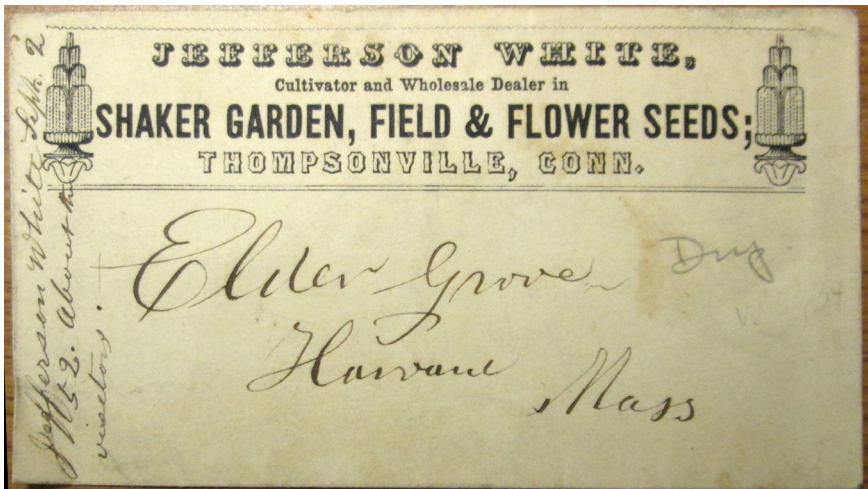 JEFFERSON WHITE,
Cultivator and Wholesale Dealer in
SHAKER GARDEN, FIELD & FLOWER SEEDS;
THOMPSONVILLE, CONN.
Elder Grove
Harvard
Mass
Jefferson White Sept. 2
About the
visitors.